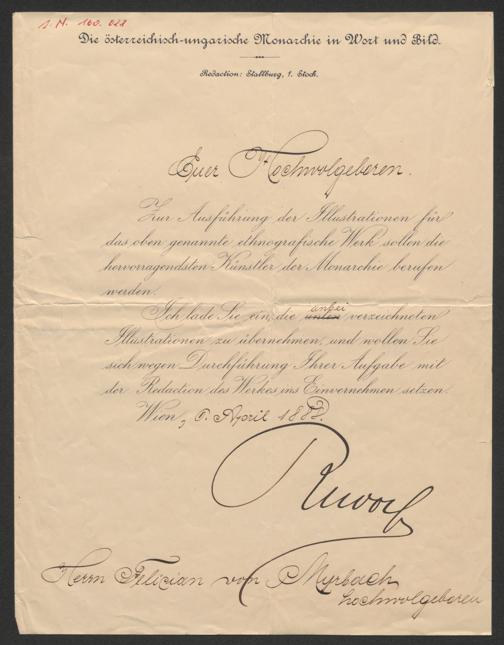 I. N. 160.028
Die österreichisch-ungarische Monarchie in Wort und Bild.
Redaction: Stallburg, 1. Stock.
Euer Hochwolgeboren.
Zur Ausführung der Illustrationen für
das oben genannte ethnografische Werk sollen die
hervorragendsten Künstler der Monarchie berufen
werden.
anbei
Ich lade Sie ein, die unten verzeichneten
Illustrationen zu übernehmen, und wollen Sie
sich wegen Durchführung Ihrer Aufgabe mit
der Redaction des Werkes ins Einvernehmen setzen.
Wien, April
Herrn Felician von Myrbach
hochwolgeboren